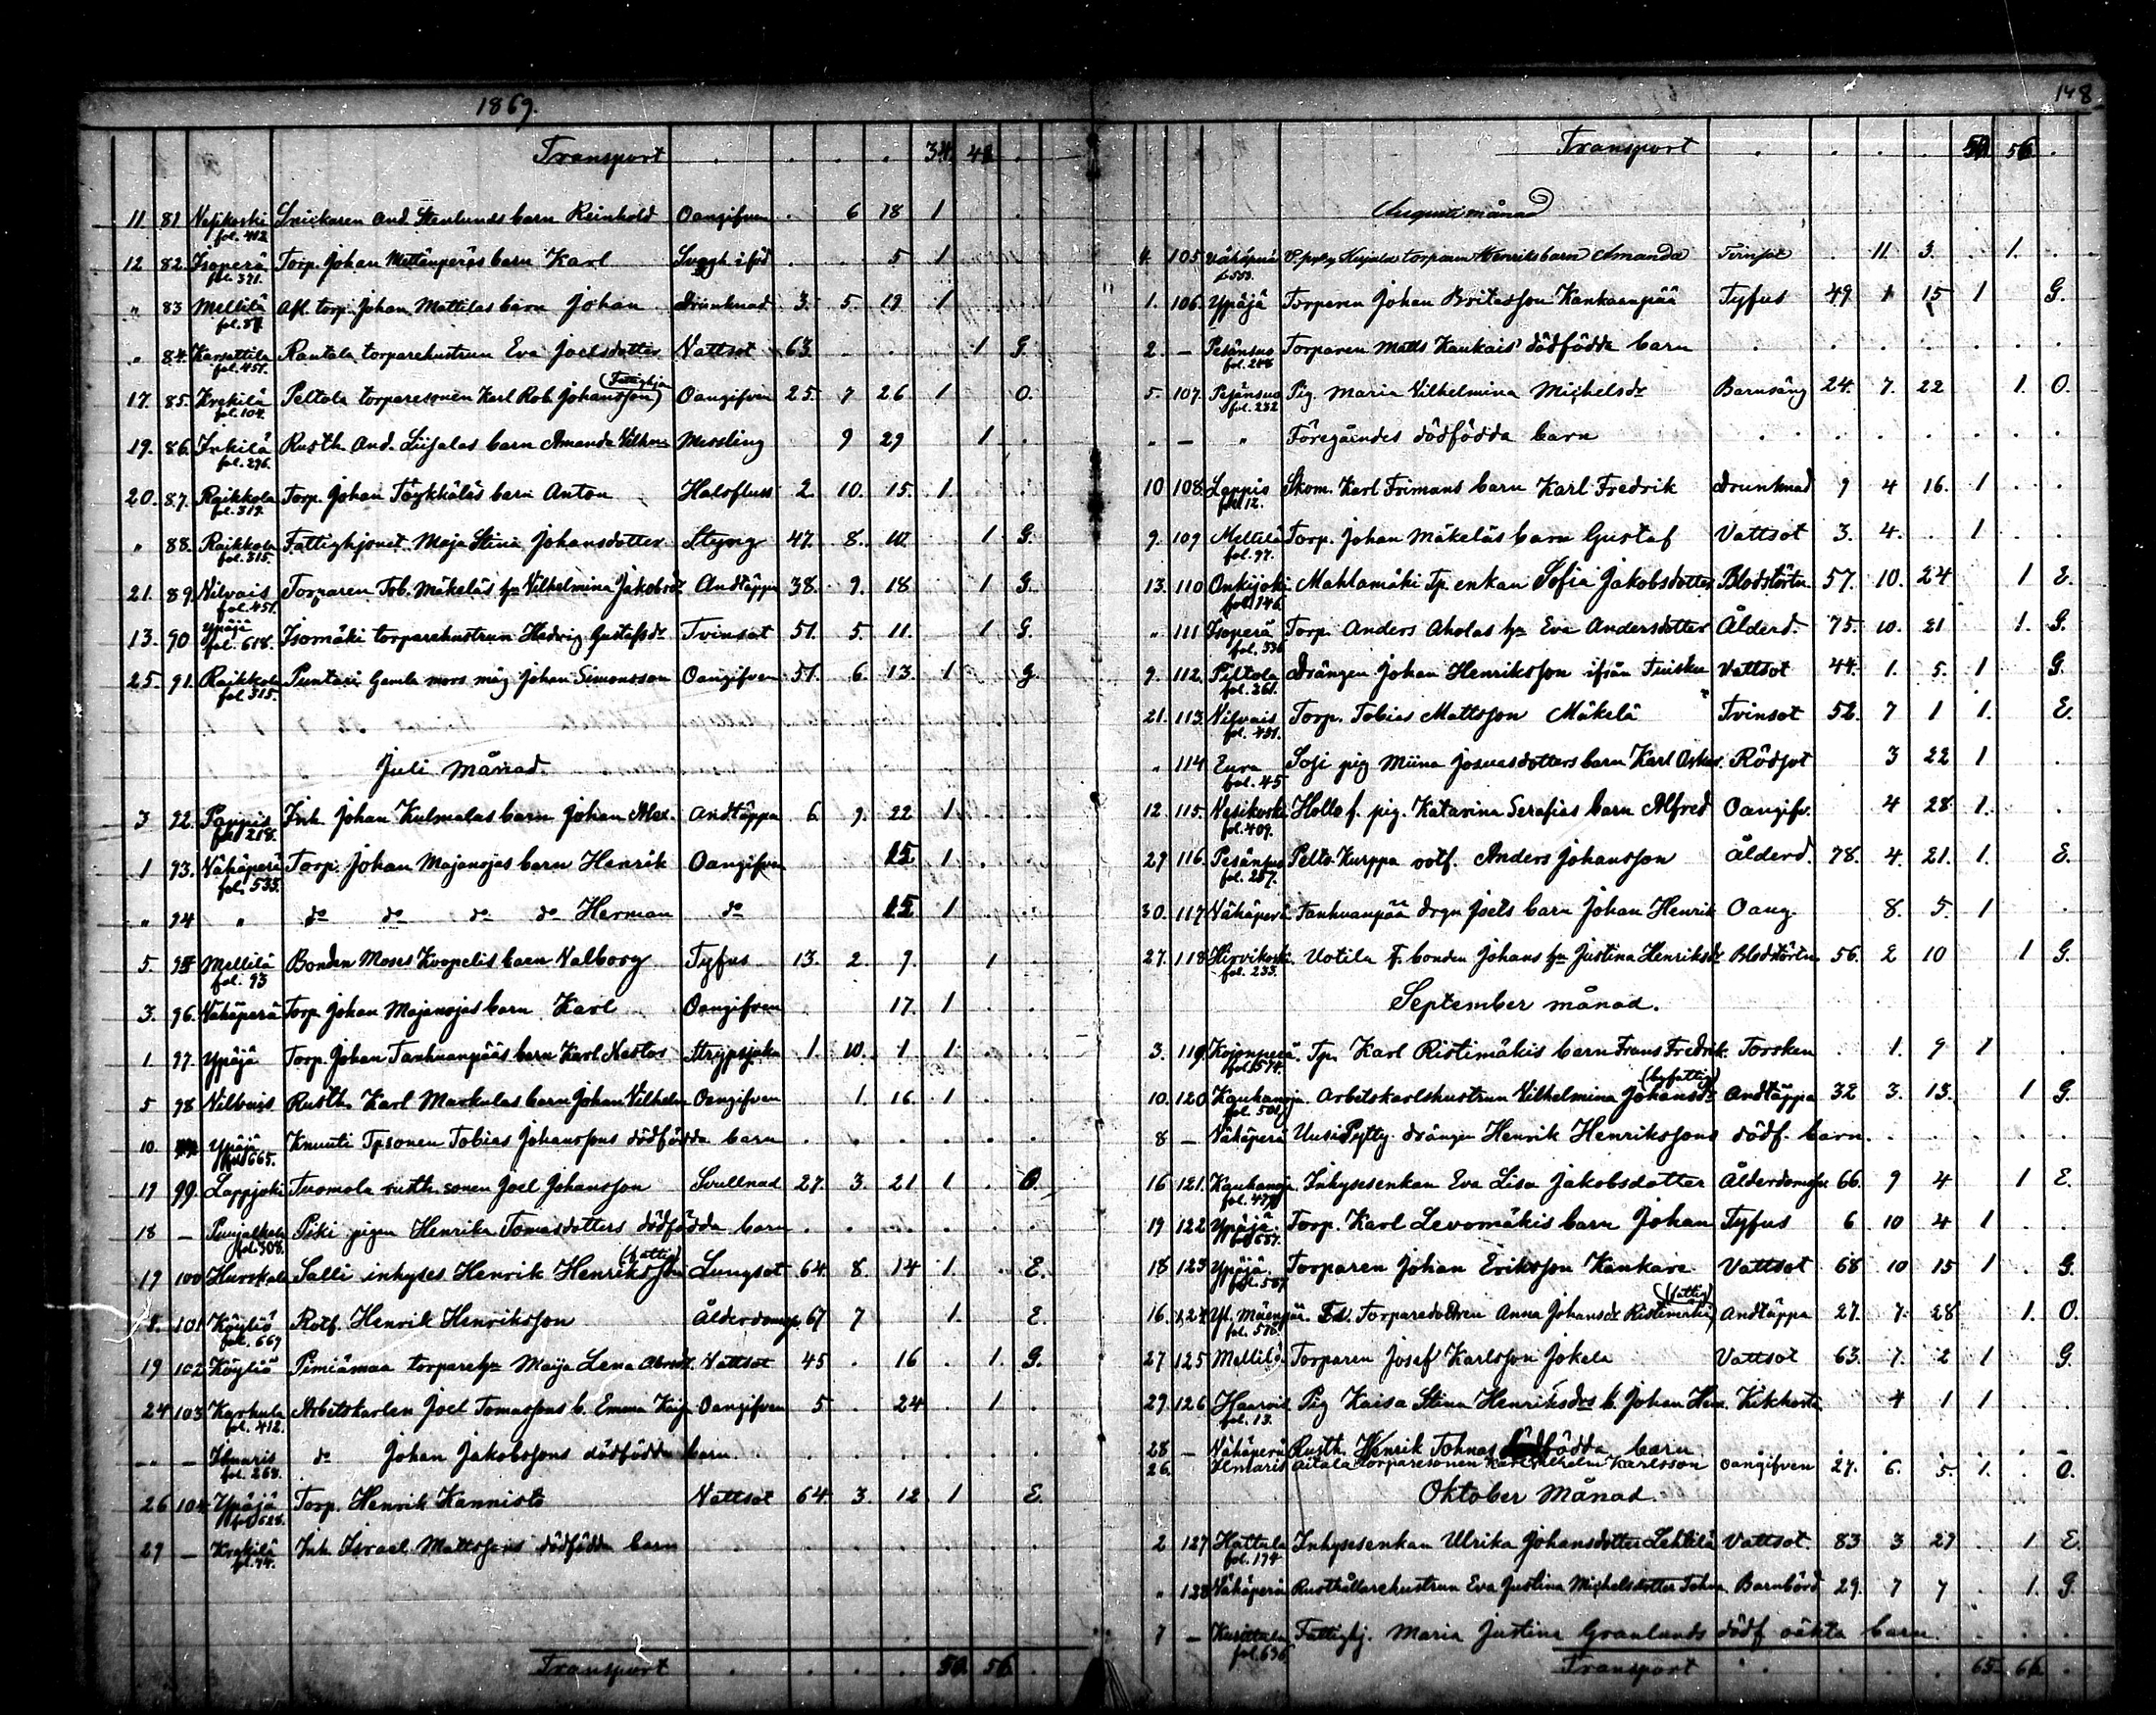 1869.
Transport . . . . 34. 48 .
11. 81 Vesikoski fol. 412 Snickaren And. Stenlunds barn Reinhold Oangifven . 6 18 1 .
12 82. Isoperä fol. 371. Torp. Johan Mettänperäs barn Karl 5 1
" 83 Mellilä fol. 87. Afl. torp. Johan Mattilas barn Johan Drunknad 3. 5. 19 1
" 84. Karsattila fol. 451. Rantala torparehustrun Eva Joelsdotter Vattsot 63 . . . 1 G.
17. 85. Krekilä fol. 104. Peltola torparesonen Karl Rob. Johansson (Fattighjon) Oangifven 25. 7 26 1 O.
19. 86. Inkilä fol. 296. Rusth. And. Liijalas barn Amanda Vilhm Messling 9 29 1 .
20. 87. Raikkola fol. 319. Torp. Johan Töykkäläs barn Anton Halsfluss 2. 10. 15. 1.
" 88. Raikkola fol. 315. Fattighjonet Maja Stina Johansdotter Styng 47. 8. 10. 1 G.
21. 89. Vilvais fol. 451. Torparen Tob. Mäkeläs hu Vilhelmina Jakobsdr Andtäppa 38. 9. 18 1 G.
13. 90 Ypäjä fol. 618. Isomäki torparehustrun Hedvig Gustafsdr Tvinsot 51. 5. 11. 1 G.
25. 91. Raikkola fol. 315. Puntari Gamla mors måg Johan Simonsson Oangifven 51. 6 13. 1 G.
Juli Månad.
3 92. Pappis fol. 218. Inh. Johan Kulmalas barn Johan Alex. Andtäppa 6. 9. 22 1.
1 93. Vähäperä fol. 533. Torp. Johan Majanojas barn Henrik Oangifven 15 1
" 94 " do do do do Herman do 15 1
5. 95 Mellilä fol. 93 Bonden Moses Kvopelis barn Valborg Tyfus 13. 2. 9. 1
3. 96. Vähäperä Torp. Johan Majanojas barn Karl Oangifven 17. 1
1. 97. Ypäjä Torp. Johan Tanhuanpääs barn Karl Nestor Strypsjuka 1. 10. 1 1
5 98 Vilvais Rusth. Karl Markulas barn Johan Vilhelm Oangifven 1. 16. 1
10. Ypäjä fol. 665. Knuuti Tpsonen Tobias Johanssons dödfödda barn . . . . . . .
17 99. Lappjoki Tuomola rusth. sonen Joel Johansson Svullnad 27. 3. 21 1. O.
18 — fol. 308. Piki pigan Henrika Tomasdotters dödfödda barn . . . . . . .
17 100 Hurskala Salli inhyses Henrik Henriksson (fattig) Lungsot 64. 8. 14 1. E.
8. 101 Köyliö fol. 669 Rotf. Henrik Henriksson Ålderdomssv. 67 7 1. E.
19 102 Köyliö Pimiämaa torparehu Maija Lena Abramsdr. Vattsot 45 . 16 . 1. G.
24 103 Karhula fol. 412. Arbetskarlen Joel Tomassons b. Emma Kaija Oangifven 5 . 24 1
" — Ilmaris fol. 268. do Johan Jakobssons dödfödda barn . . . . . . .
26 104. Ypäjä fol. 628. Torp. Henrik Kannisto Vattsot 64 3. 12. 1 E.
29 — Krekilä fol. 94. Inh. Israel Mattssons dödfödda barn . . . . . . .
Transport . . . . 50. 56. .
148
Transport . . . . 50. 56. .
Augusti månad
4. 105 Vähäperä f. 553. torparen Henriks barn Amanda Tvinsot 11 3. 1.
1. 106. Ypäjä Torparen Johan Britasson Kankaanpää Tyfus 49 1 15 1 G.
2. — Pesänsuo fol. 288 Torparen Matts Kaukais' dödfödda barn . . . . . . .
5. 107. Pesänsuo fol. 232 Pig. Maria Vilhelmina Michelsdr Barnsäng 24. 7. 22 1. O.
" — " Föregåendes dödfödda barn . . . . . . .
10 108. Lappis fol. 12. Skom. Karl Frimans barn Karl Fredrik Drunknad 9 4 16. 1
9. 109 Mellilä fol. 97. Torp. Johan Mäkeläs barn Gustaf Vattsot 3. 4. . 1
13. 110 Onkijoki fol. 146. Mahlamäki Tp. enkan Sofia Jakobsdotter Blodstörtn. 57. 10. 24 1 E.
" 111 Isoperä fol. 336 Torp. Anders Aholas hu Eva Andersdotter Ålderd. 75. 10. 21 1. G.
9. 112. Piltola fol. 261. Drängen Johan Henriksson ifrån Tuiskn Vattsot 44. 1. 5. 1 G.
21. 113. Vilvais fol. 451. Torp. Tobias Mattsson Mäkelä Tvinsot 52. 7 1 1. E.
" 114 Eura fol. 45 Soji pig Miina Josuasdotters barn Karl Oskar. Rödsot 3 22 1
12. 115. Vesikoski fol. 409. Hollo f. pig. Katarina Serafias barn Alfred Oangifv. 4 28 1.
29 116. Pesänsuo fol. 257. Pelto Kurppa rotf. Anders Johansson Ålderd. 78. 4. 21. 1. E.
30. 117. Vähäperä Tanhuanpää drgn Joels barn Johan Henrik Oang. 8. 5. 1
27. 118 Hirvikoski fol. 233. Uotila f. bonden Johans hu Justina Henriksdr Blodstörtn. 56. 2 10 1 G.
September månad.
3. 119. Kojonperä fol. 574. Tp. Karl Ristimäkis barn Frans Fredrik. Torsken . 1. 9 1
10. 120 Kauhanoja fol. 501 Arbetskarlshustrun Vilhelmina Johansdr (byfattig) Andtäppa 32 3. 13. 1 G.
8 — Vähäperä UusiPytty drängen Henrik Henrikssons dödf. barn. . . . . . .
16 121. Kauhanoja fol. 479 Inhysesenkan Eva Lisa Jakobsdotter Ålderdomssv. 66. 9 4 1 E.
19 122 Ypäjä fol. 657. Torp. Karl Levomäkis barn Johan Tyfus 6 10 4 1
18 123 Ypäjä fol. 507 Torparen Johan Eriksson Kankare Vattsot 68 10 15 1 G.
16. 124 fol. 576. Torparedottren Anna Johansdr Ristimäki (fattig) Andtäppa 27. 7. 28 1. O.
27 125 Mellilä. Torparen Josef Karlsson Jokela Vattsot 63. 7. 2 1 G.
29. 126 Haarois fol. 13. Pig Kaisa Stina Henriksdrs b. Johan Henr. Kikhosta 4 1 1
28 — Vähäperä Rusth. Henrik Tohnas dödfödda barn
26. Ilmaris Aitala torparesonen Karl Vilhelm Karlsson Oangifven 27. 6. 5. 1. O.
Oktober Månad.
2 127 Hattula fol. 194 Inhysesenkan Ulrika Johansdotter Lehtilä Vattsot. 83 3 27 1 E.
" 128 Vähäperä Rusthållarehustrun Eva Justina Michelsdotter Tohna Barnbörd 29. 7 7 1. G.
7 — fol. 636 Fattighj. Maria Justina Granlunds dödf oäkta barn. . . .
Transport . . . . 65. 66. .